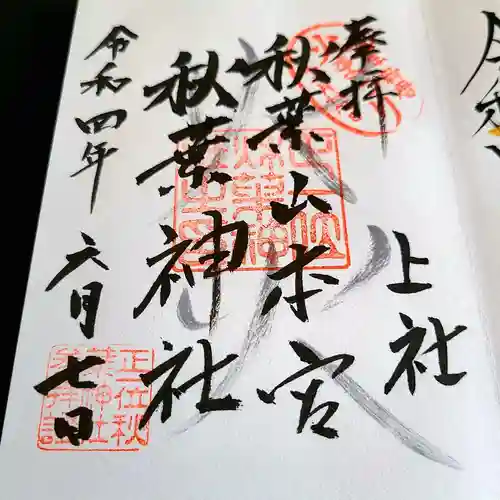 奉拝
上社
秋葉山本宮
秋葉神社
令和四年
六月七日
火
正一位秋
葉神社